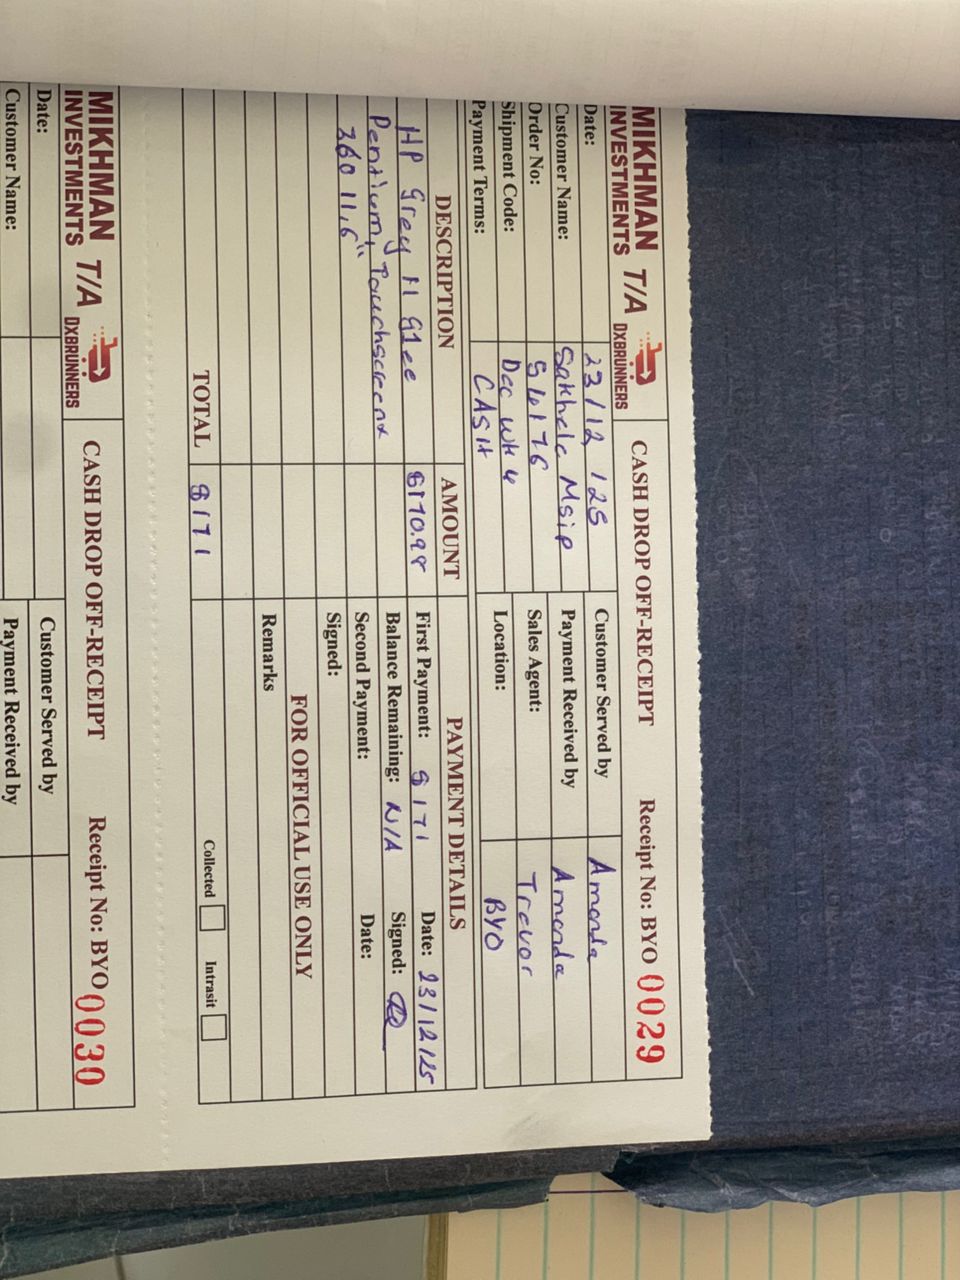 MIKHMAN INVESTMENTS T/A DXBRUNNERS CASH DROP OFF-RECEIPT Receipt No: BYO 0029
Date: 23/12/25 Customer Served by Amanda
Customer Name: Sakhele Msip Payment Received by Amanda
Order No: Sales Agent: Trevor
Shipment Code: Dec wk 4 Location: BYO
Payment Terms: CASH
DESCRIPTION AMOUNT PAYMENT DETAILS
HP Grey 11 G1ee $170.98 First Payment: $171 Date: 23/12/25
Pentium, Touchscreen x Balance Remaining: N/A Signed:
360 11,6" Second Payment: Date:
Signed:
FOR OFFICIAL USE ONLY
Remarks
TOTAL $171
Collected Intrasit
MIKHMAN INVESTMENTS T/A DXBRUNNERS CASH DROP OFF-RECEIPT Receipt No: BYO 0030
Date: Customer Served by
Customer Name: Payment Received by